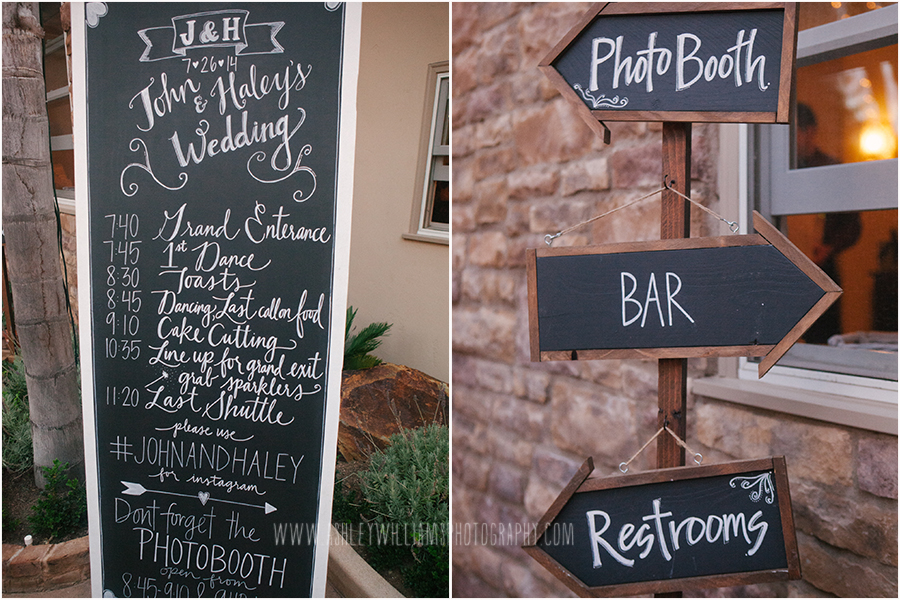 J & H
7♥26♥14
John
& Haley's
Wedding
7:40 Grand Enterance
7:45 1st Dance
8:30 Toasts
8:45 Dancing, Last call on food
9:10 Cake Cutting
10:35 Line up for grand exit
& grab sparklers
11:20 Last Shuttle
please use
#JOHNANDHALEY
for instagram
Dont forget the
PHOTOBOOTH
open from
8:45-9:10 &
Photo Booth
BAR
Restrooms
WWW.ASHLEYWILLIAMSPHOTOGRAPHY.COM